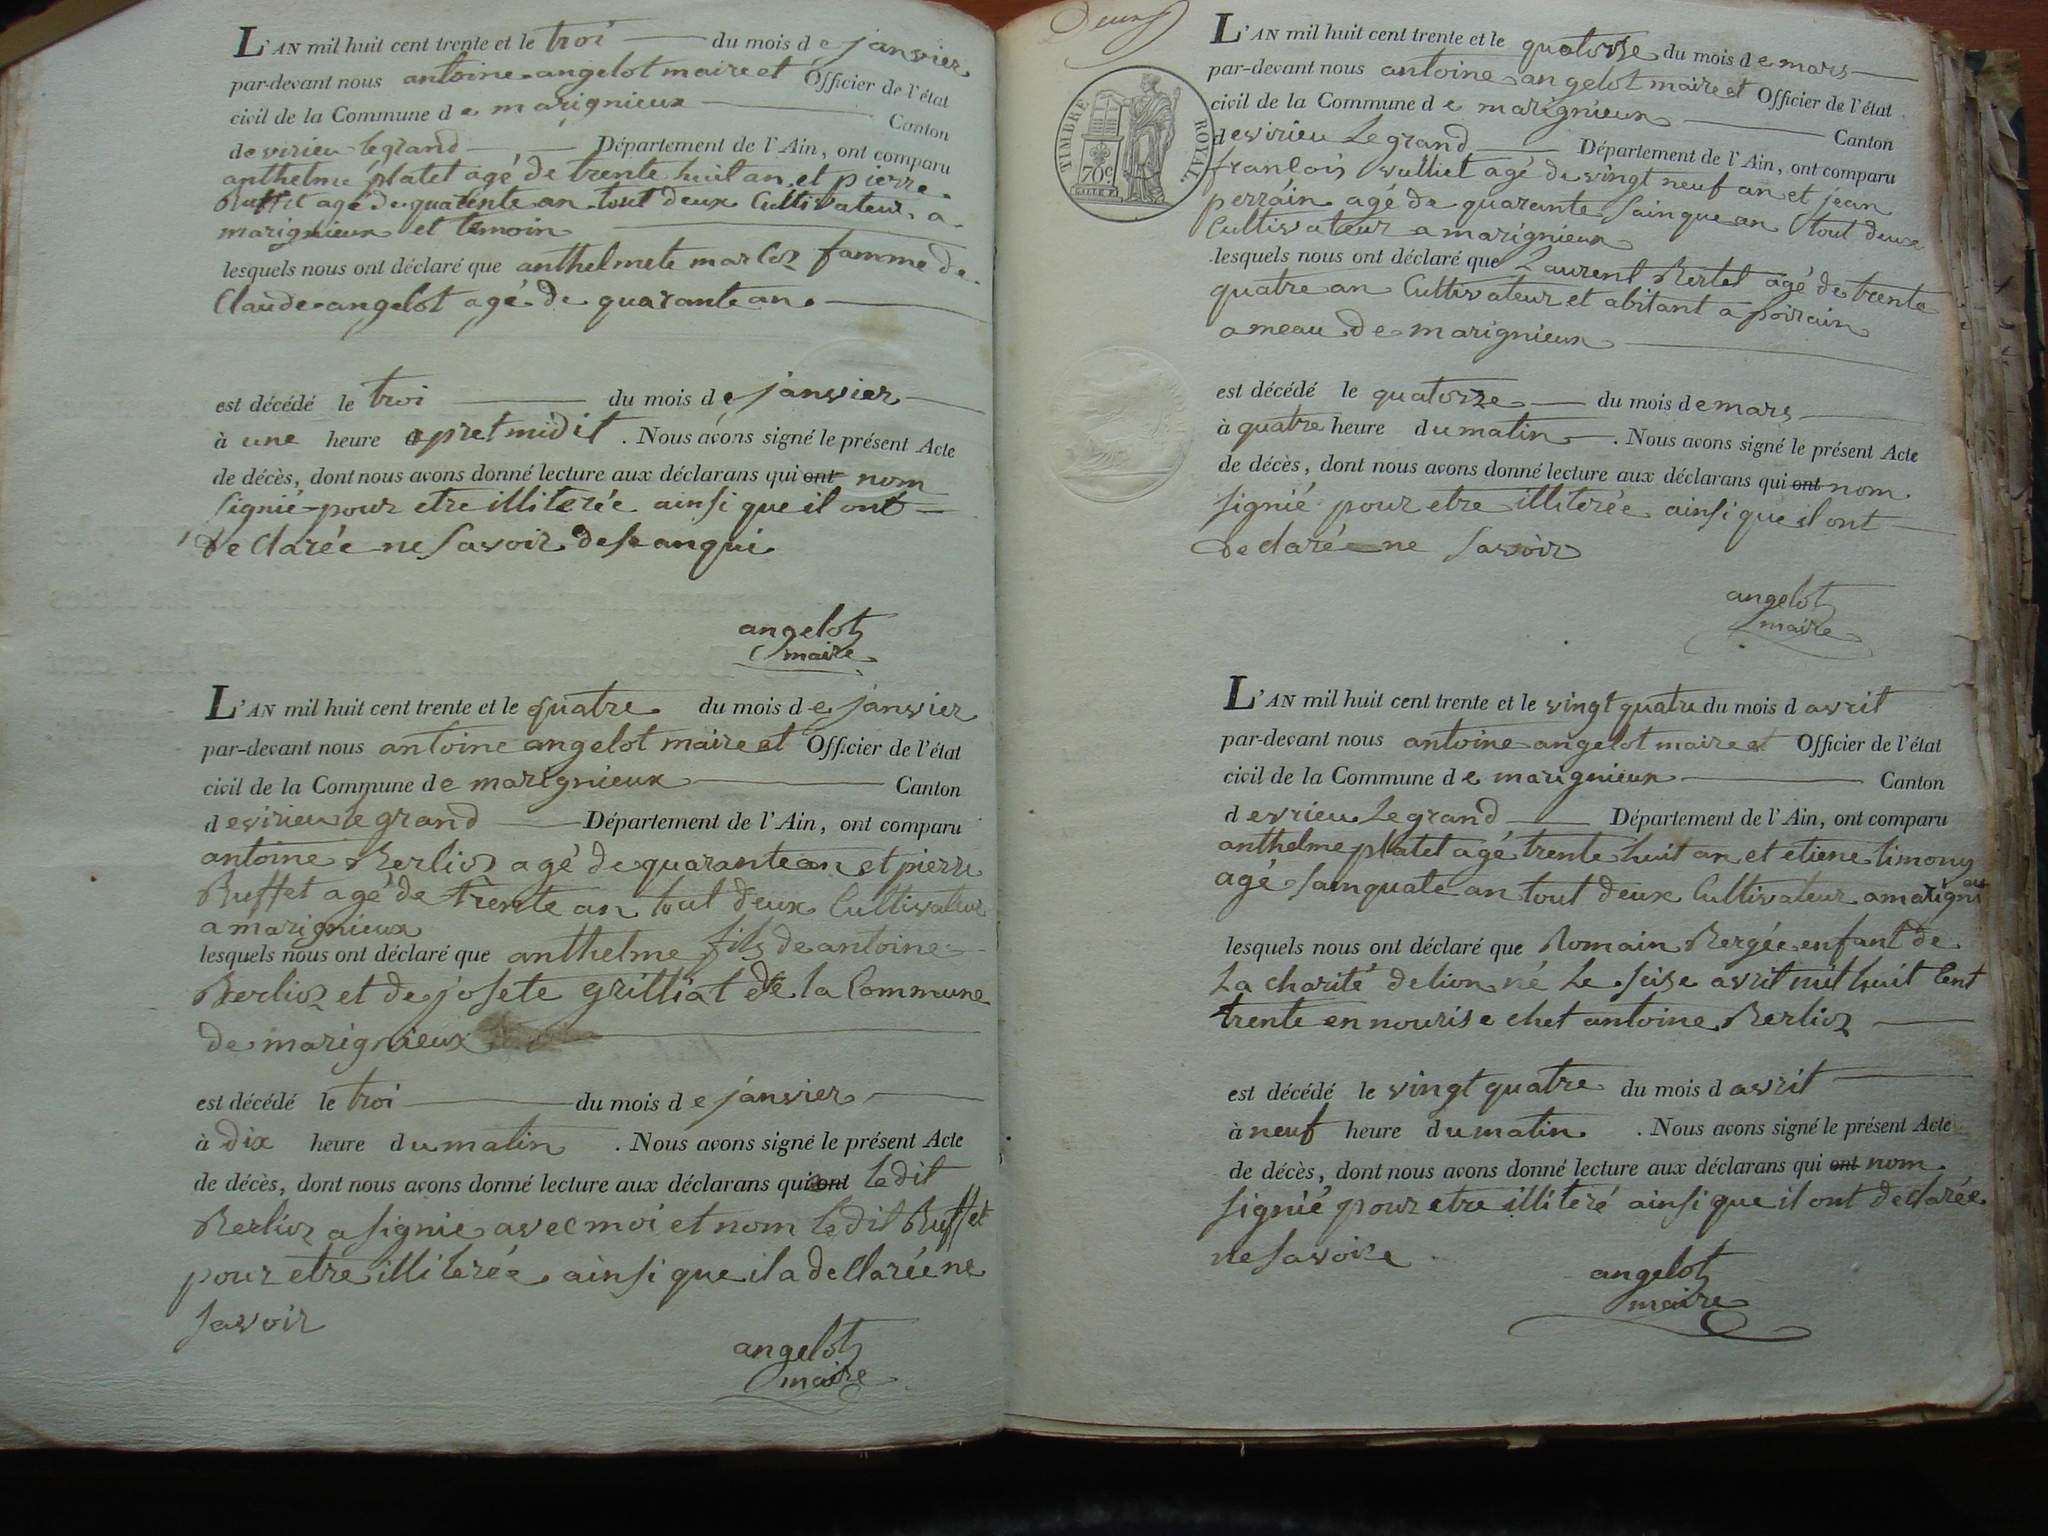 L'AN mil huit cent trente et le troi du mois de janvier
par-devant nous antoine angelot maire et Officier de l'état
civil de la Commune de marignieux Canton
de virieu legrand Département de l'Ain, ont comparu
anthelme platet agé de trente huit an et pierre
Buffet agé de quatente an tout deux Cultivateur a
marignieux et temoin
lesquels nous ont déclaré que anthelmete marloz famme de
Claude angelot agé de quarante an
est décédé le troi du mois de janvier
à une heure apret midit . Nous avons signé le présent Acte
de décès, dont nous avons donné lecture aux déclarans qui ont nom
signié pour etre illiterée ainsi que il ont
declarée ne savoir de
angelot
maire
L'AN mil huit cent trente et le quatre du mois de janvier
par-devant nous antoine angelot maire et Officier de l'état
civil de la Commune de marignieux Canton
de virieu le grand Département de l'Ain, ont comparu
antoine Berlioz agé de quarante an et pierre
Buffet agé de trente an tout deux Cultivateur
a marignieux
lesquels nous ont déclaré que anthelme fils de antoine
Berlioz et de josete grilliat de la Commune
de marignieux
est décédé le troi du mois de janvier
à dix heure du matin . Nous avons signé le présent Acte
de décès, dont nous avons donné lecture aux déclarans qui ont ledit
Berlioz a signie avec moi et nom ledit Buffet
pour etre illiterée ainsi que il a dellarée ne
savoir
angelot
maire
Deux
TIMBRE ROYAL.
70c
L'AN mil huit cent trente et le quatorse du mois de mars
par-devant nous antoine angelot maire et Officier de l'état
civil de la Commune de marignieux Canton
de virieu Le grand Département de l'Ain, ont comparu
francois vulliet agé de vingt neuf an et jean
perrain agé de quarante sainque an tout deux
Cultivateur a marignieux
lesquels nous ont déclaré que Laurent Bertet agé de trente
quatre an Cultivateur et abitant a poirain
ameau de marignieux
est décédé le quatorze du mois de mars
à quatre heure du matin . Nous avons signé le présent Acte
de décès, dont nous avons donné lecture aux déclarans qui ont nom
signié pour etre illiterée ainsi que il ont
declarée ne savoir
angelot
maire
L'AN mil huit cent trente et le vingt quatre du mois d avrit
par-devant nous antoine angelot maire et Officier de l'état
civil de la Commune de marignieux Canton
de vrieu Le grand Département de l'Ain, ont comparu
anthelme platet agé trente huit an et etiene timony
agé sainquate an tout deux Cultivateur a marigni
lesquels nous ont déclaré que Romain Bergée enfant de
La charité de lion né Le seise avrit mil huit Cent
trente en nourise chet antoine Berlioz
est décédé le vingt quatre du mois d avrit
à neuf heure du matin . Nous avons signé le présent Acte
de décès, dont nous avons donné lecture aux déclarans qui ont nom
signié pour etre illiteré ainsi que il ont declarée
ne savoire
angelot
maire